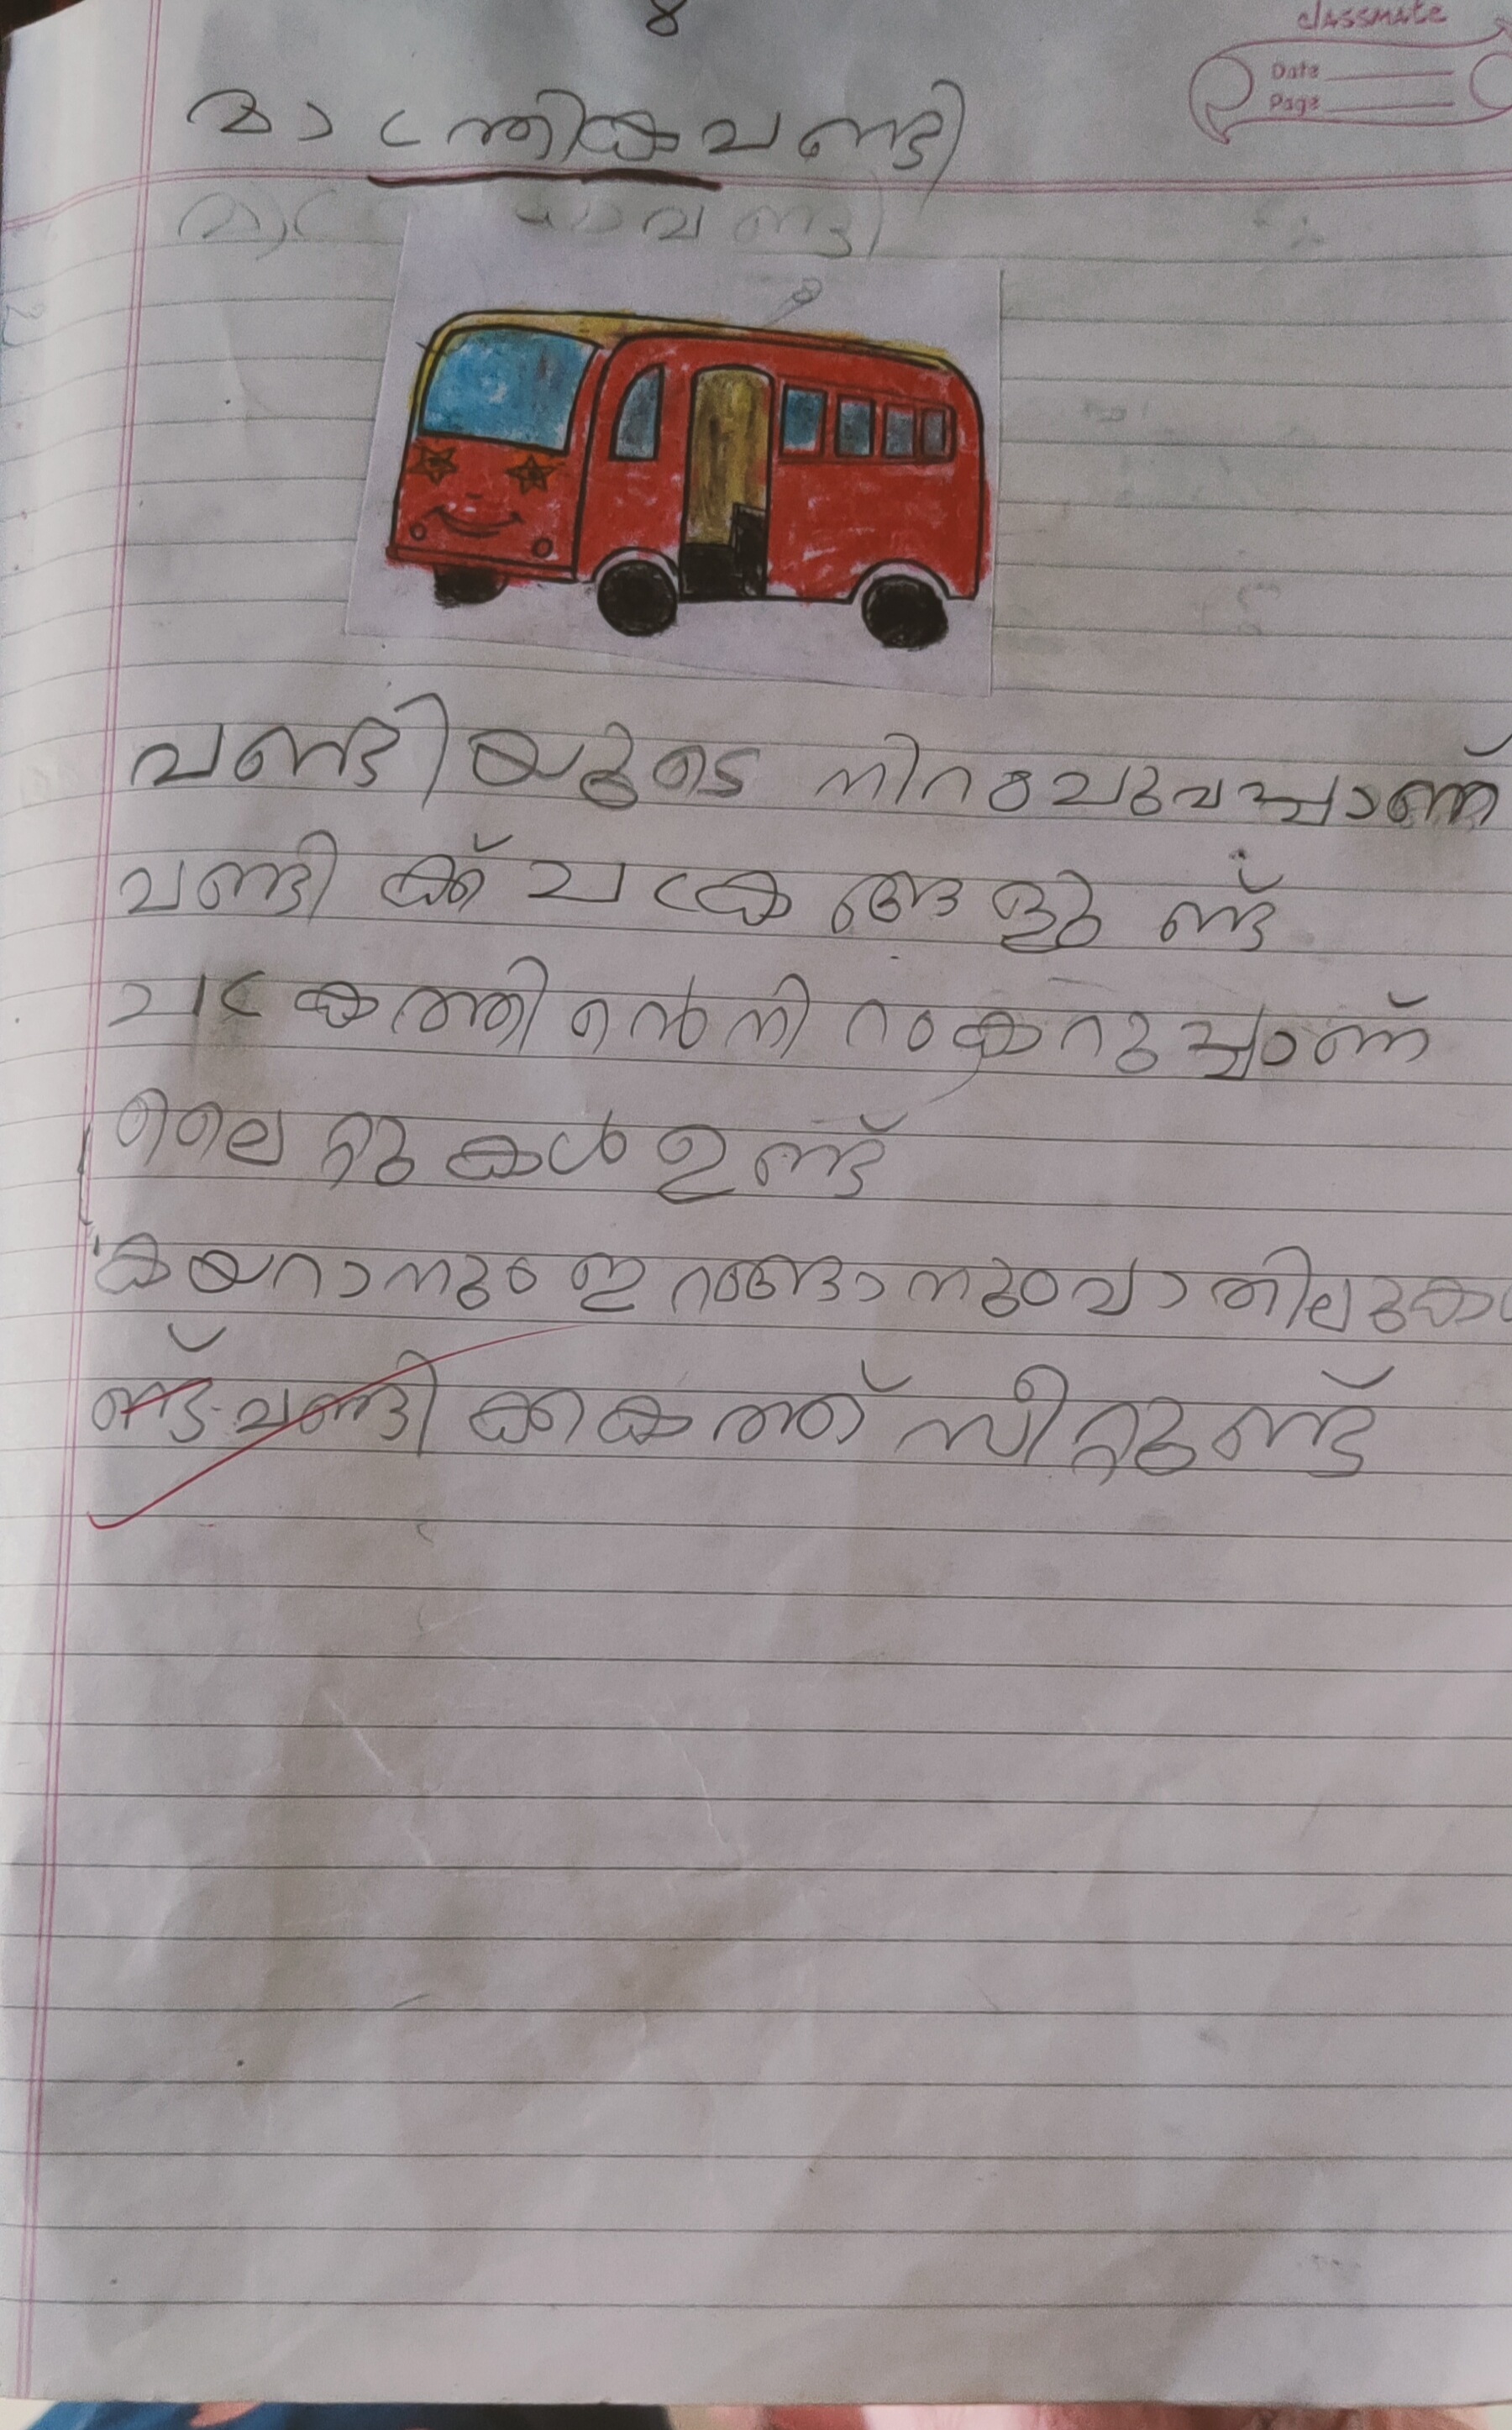 8
classmate
Date
Page
മാന്ത്രികവണ്ടി
വണ്ടിയുടെ നിറം ചുവപ്പാണ്
വണ്ടിക്ക് ചക്രങ്ങളുണ്ട്
ചക്രത്തിൻെ നിറം കറുപ്പാണ്
ലൈറ്റുകൾ ഉണ്ട്
കയറാനും ഇറങ്ങാനും വാതിലുക
ണ്ട് വണ്ടിക്കകത്ത് സീറ്റുണ്ട്